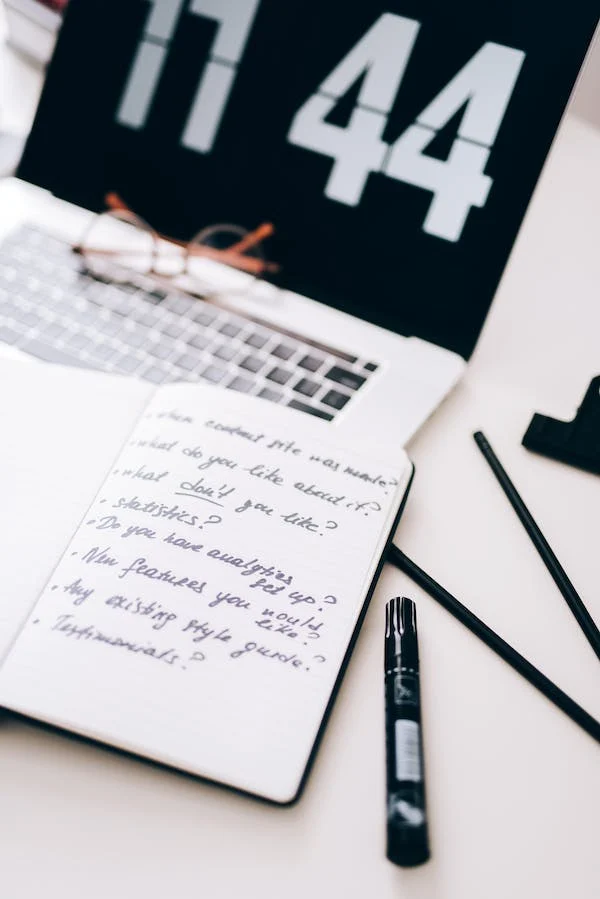 11 44
• when site was made?
• what do you like about it?
• what don't you like?
• statistics?
• Do you have analytics
set up?
• New features you would
like?
• Any existing style guide?
• Testimonials?